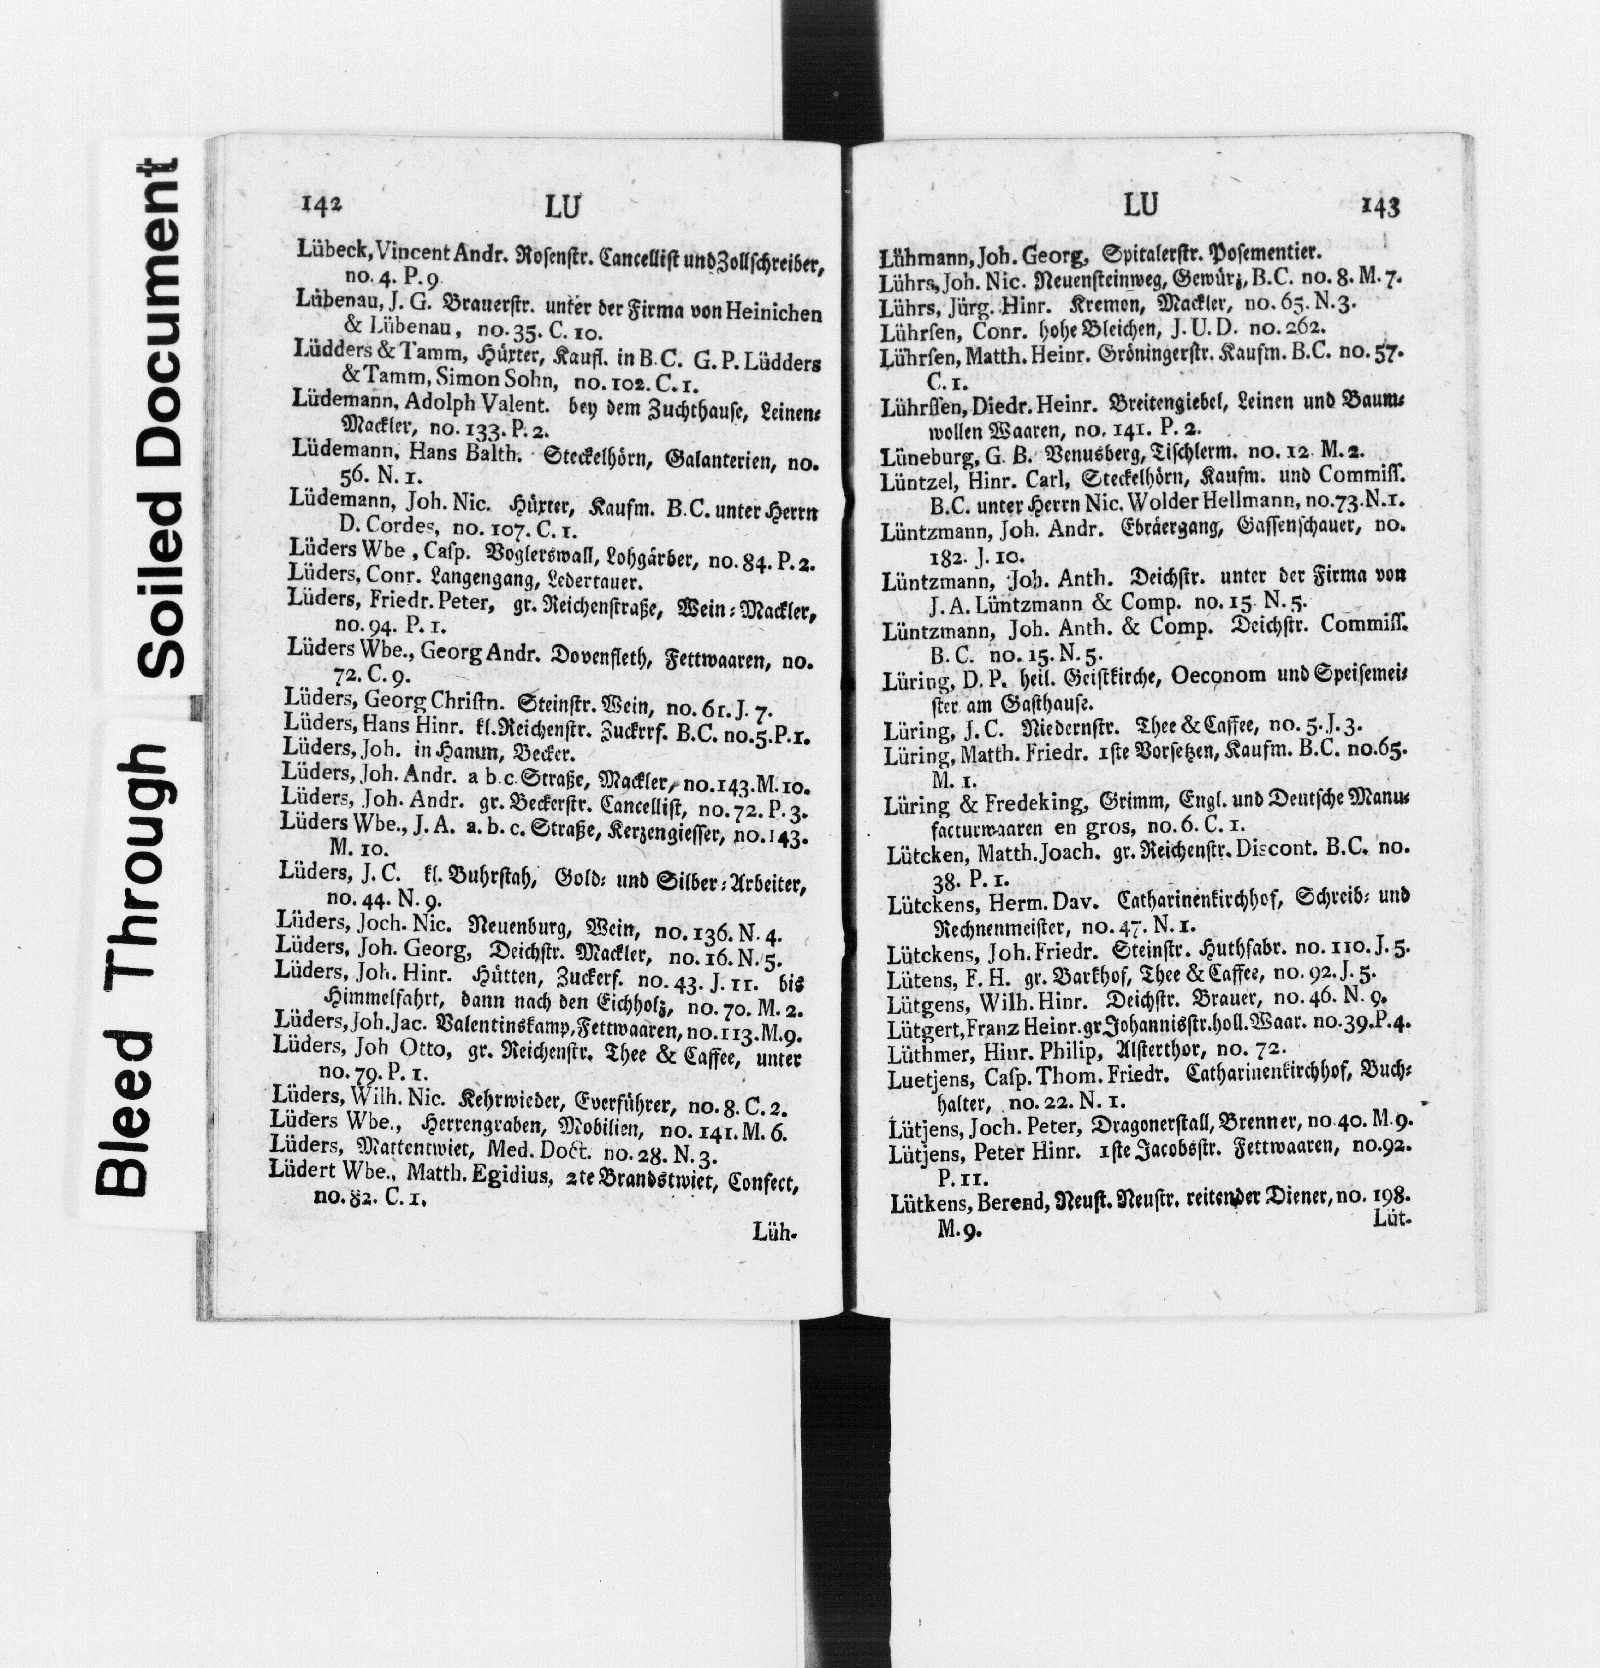 Soiled Document
Bleed Through
142 LU
Lübeck, Vincent Andr. Rosenstr. Cancellist und Zollschreiber,
no. 4. P. 9.
Lübenau, J. G. Brauerstr. unter der Firma von Heinichen
& Lübenau, no. 35. C. 10.
Lüdders & Tamm, Hüxter, Kaufl. in B. C. G. P. Lüdders
& Tamm, Simon Sohn, no. 102. C. 1.
Lüdemann, Adolph Valent. bey dem Zuchthause, Leinen-
Mackler, no. 133. P. 2.
Lüdemann, Hans Balth. Steckelhörn, Galanterien, no.
56. N. 1.
Lüdemann, Joh. Nic. Hüxter, Kaufm. B.C. unter Herrn
D. Cordes, no. 107. C. 1.
Lüders Wbe, Casp. Voglerswall, Lohgärber, no. 84. P. 2.
Lüders, Conr. Langengang, Ledertauer.
Lüders, Friedr. Peter, gr. Reichenstraße, Wein-Mackler,
no. 94. P. 1.
Lüders Wbe., Georg Andr. Dovenfleth, Fettwaaren, no.
72. C. 9.
Lüders, Georg Christn. Steinstr. Wein, no. 61. J. 7.
Lüders, Hans Hinr. kl. Reichenstr. Zuckrrf. B.C. no. 5. P. 1.
Lüders, Joh. in Hamm, Becker.
Lüders, Joh. Andr. a b. c. Straße, Mackler, no. 143. M. 10.
Lüders, Joh. Andr. gr. Beckerstr. Cancellist, no. 72. P. 3.
Lüders Wbe., J. A. a. b. c. Straße, Kerzengiesser, no. 143.
M. 10.
Lüders, J. C. kl. Buhrstah, Gold- und Silber-Arbeiter,
no. 44. N. 9.
Lüders, Joch. Nic. Neuenburg, Wein, no. 136. N. 4.
Lüders, Joh. Georg, Deichstr. Mackler, no. 16. N. 5.
Lüders, Joh. Hinr. Hütten, Zuckerf. no. 43. J. 11. bis
Himmelfahrt, dann nach den Eichholz, no. 70. M. 2.
Lüders, Joh. Jac. Valentinskamp, Fettwaaren, no. 113. M. 9.
Lüders, Joh Otto, gr. Reichenstr. Thee & Caffee, unter
no. 79. P. 1.
Lüders, Wilh. Nic. Kehrwieder, Everführer, no. 8. C. 2.
Lüders Wbe., Herrengraben, Mobilien, no. 141. M. 6.
Lüders, Mattentwiet, Med. Doct. no. 28. N. 3.
Lüdert Wbe., Matth. Egidius, 2te Brandstwiet, Confect,
no. 82. C. 1.
Lüh-
LU 143
Lühmann, Joh. Georg, Spitalerstr. Posementier.
Lührs, Joh. Nic. Neuensteinweg, Gewürz, B.C. no. 8. M. 7.
Lührs, Jürg. Hinr. Kremen, Mackler, no. 65. N. 3.
Lührsen, Conr. hohe Bleichen, J. U. D. no. 262.
Lührsen, Matth. Heinr. Gröningerstr. Kaufm. B.C. no. 57.
C. 1.
Lührssen, Diedr. Heinr. Breitengiebel, Leinen und Baum-
wollen Waaren, no. 141. P. 2.
Lüneburg, G. B. Venusberg, Tischlerm. no. 12 M. 2.
Lüntzel, Hinr. Carl, Steckelhörn, Kaufm. und Commiss.
B.C. unter Herrn Nic. Wolder Hellmann, no. 73. N. 1.
Lüntzmann, Joh. Andr. Ebräergang, Gassenschauer, no.
182. J. 10.
Lüntzmann, Joh. Anth. Deichstr. unter der Firma von
J. A. Lüntzmann & Comp. no. 15 N. 5.
Lüntzmann, Joh. Anth. & Comp. Deichstr. Commiss.
B. C. no. 15. N. 5.
Lüring, D. P. heil. Geistkirche, Oeconom und Speisemei-
ster am Gasthause.
Lüring, J. C. Niedernstr. Thee & Caffee, no. 5. J. 3.
Lüring, Matth. Friedr. 1ste Vorsetzen, Kaufm. B.C. no. 65.
M. 1.
Lüring & Fredeking, Grimm, Engl. und Deutsche Manu-
facturwaaren en gros, no. 6. C. 1.
Lütcken, Matth. Joach. gr. Reichenstr. Discont. B.C. no.
38. P. 1.
Lütckens, Herm. Dav. Catharinenkirchhof, Schreib- und
Rechnenmeister, no. 47. N. 1.
Lütckens, Joh. Friedr. Steinstr. Huthfabr. no. 110. J. 5.
Lütens, F. H. gr. Barkhof, Thee & Caffee, no. 92. J. 5.
Lütgens, Wilh. Hinr. Deichstr. Brauer, no. 46. N. 9.
Lütgert, Franz Heinr. gr. Johannisstr. holl. Waar. no. 39. P. 4.
Lüthmer, Hinr. Philip, Alsterthor, no. 72.
Luetjens, Casp. Thom. Friedr. Catharinenkirchhof, Buch-
halter, no. 22. N. 1.
Lütjens, Joch. Peter, Dragonerstall, Brenner, no. 40. M. 9.
Lütjens, Peter Hinr. 1ste Jacobsstr. Fettwaaren, no. 92.
P. 11.
Lütkens, Berend, Neust. Neustr. reitender Diener, no. 198.
M. 9.
Lüt-